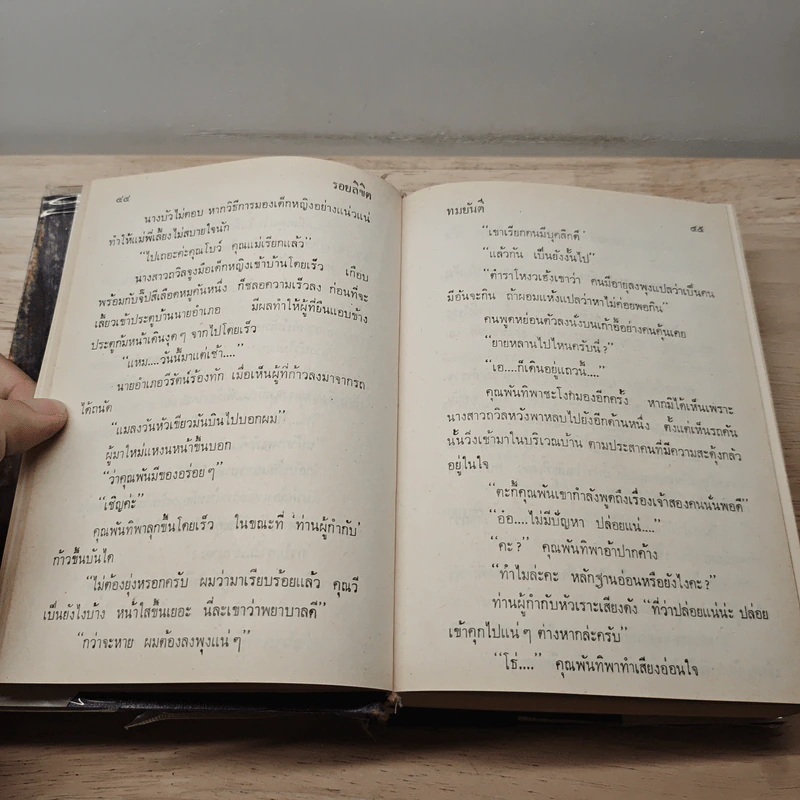 ๔๔
รอยลิขิต
นางบัวไม่ตอบ หากวิธีการมองเด็กหญิงอย่างแน่วแน่
ทำให้แม่พี่เลี้ยงไม่สบายใจนัก
“ไปเถอะค่ะคุณโบว์ คุณแม่เรียกแล้ว”
นางสาวถวิลจูงมือเด็กหญิงเข้าบ้านโดยเร็ว เกือบ
พร้อมกับจี๊ปสีเลือดหมูคันหนึ่ง ก็ชลอความเร็วลง ก่อนที่จะ
เลี้ยวเข้าประตูบ้านนายอำเภอ มีผลทำให้ผู้ที่ยืนแอบข้าง
ประตูก้มหน้าเดินงุด ๆ จากไปโดยเร็ว
“แหม....วันนี้มาแต่เช้า....”
นายอำเภอวีรัตน์ร้องทัก เมื่อเห็นผู้ที่ก้าวลงมาจากรถ
ได้ถนัด
“แมลงวันหัวเขียวมันบินไปบอกผม”
ผู้มาใหม่แหงนหน้าขึ้นบอก
“ว่าคุณพันมีของอร่อย ๆ”
“เชิญค่ะ”
คุณพันทิพาลุกขึ้นโดยเร็ว ในขณะที่ ‘ท่านผู้กำกับ’
ก้าวขึ้นบันได
“ไม่ต้องยุ่งหรอกครับ ผมว่ามาเรียบร้อยแล้ว คุณวี
เป็นยังไงบ้าง หน้าใสขึ้นเยอะ นี่ละเขาว่าพยาบาลดี”
“กว่าจะหาย ผมต้องลงพุงแน่ ๆ”
ทมยันตี
๔๕
“เขาเรียกคนมีบุคลิกดี”
“แล้วกัน เป็นยังงั้นไป”
“ตำราโหงวเฮ้งเขาว่า คนมีอายุลงพุงแปลว่าเป็นคน
มีอันจะกิน ถ้าผอมแห้งแปลว่าหาไม่ค่อยพอกิน”
คนพูดหย่อนตัวลงนั่งบนเก้าอี้อย่างคนคุ้นเคย
“ยายหลานไปไหนครับนี่?”
“เอ....ก็เดินอยู่แถวนี้....”
คุณพันทิพาชะโงกมองอีกครั้ง หากมิได้เห็นเพราะ
นางสาวถวิลหวังพาหลบไปยังอีกด้านหนึ่ง ตั้งแต่เห็นรถคัน
นั้นวิ่งเข้ามาในบริเวณบ้าน ตามประสาคนที่มีความสะดุ้งกลัว
อยู่ในใจ
“ตะกี้คุณพันเขากำลังพูดถึงเรื่องเจ้าสองคนนั่นพอดี”
“อ๋อ....ไม่มีปัญหา ปล่อยแน่....”
“คะ?” คุณพันทิพาอ้าปากค้าง
“ทำไมล่ะคะ หลักฐานอ่อนหรือยังไงคะ?”
ท่านผู้กำกับหัวเราะเสียงดัง “ที่ว่าปล่อยแน่น่ะ ปล่อย
เข้าคุกไปแน่ ๆ ต่างหากล่ะครับ”
“โธ่....” คุณพันทิพาทำเสียงอ่อนใจ